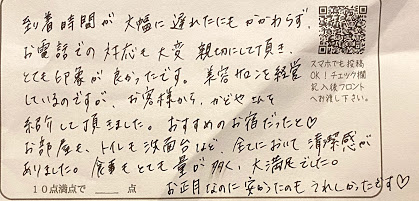 到着時間が大幅に遅れたにもかかわらず、
お電話での対応も大変親切にして頂き、
とても印象が良かったです。美容サロンを経営
しているのですが、お客様から、かどやさんを
紹介して頂きました。おすすめのお宿だったと♡
お部屋も、トイレも洗面台など、全てにおいて清潔感が
ありました。食事もとても量が多く、大満足でした。
お正月なのに安かったのもうれしかったです♡
10点満点で 点
スマホでも投稿
OK!チェック欄
記入後フロント
へお渡し下さい。